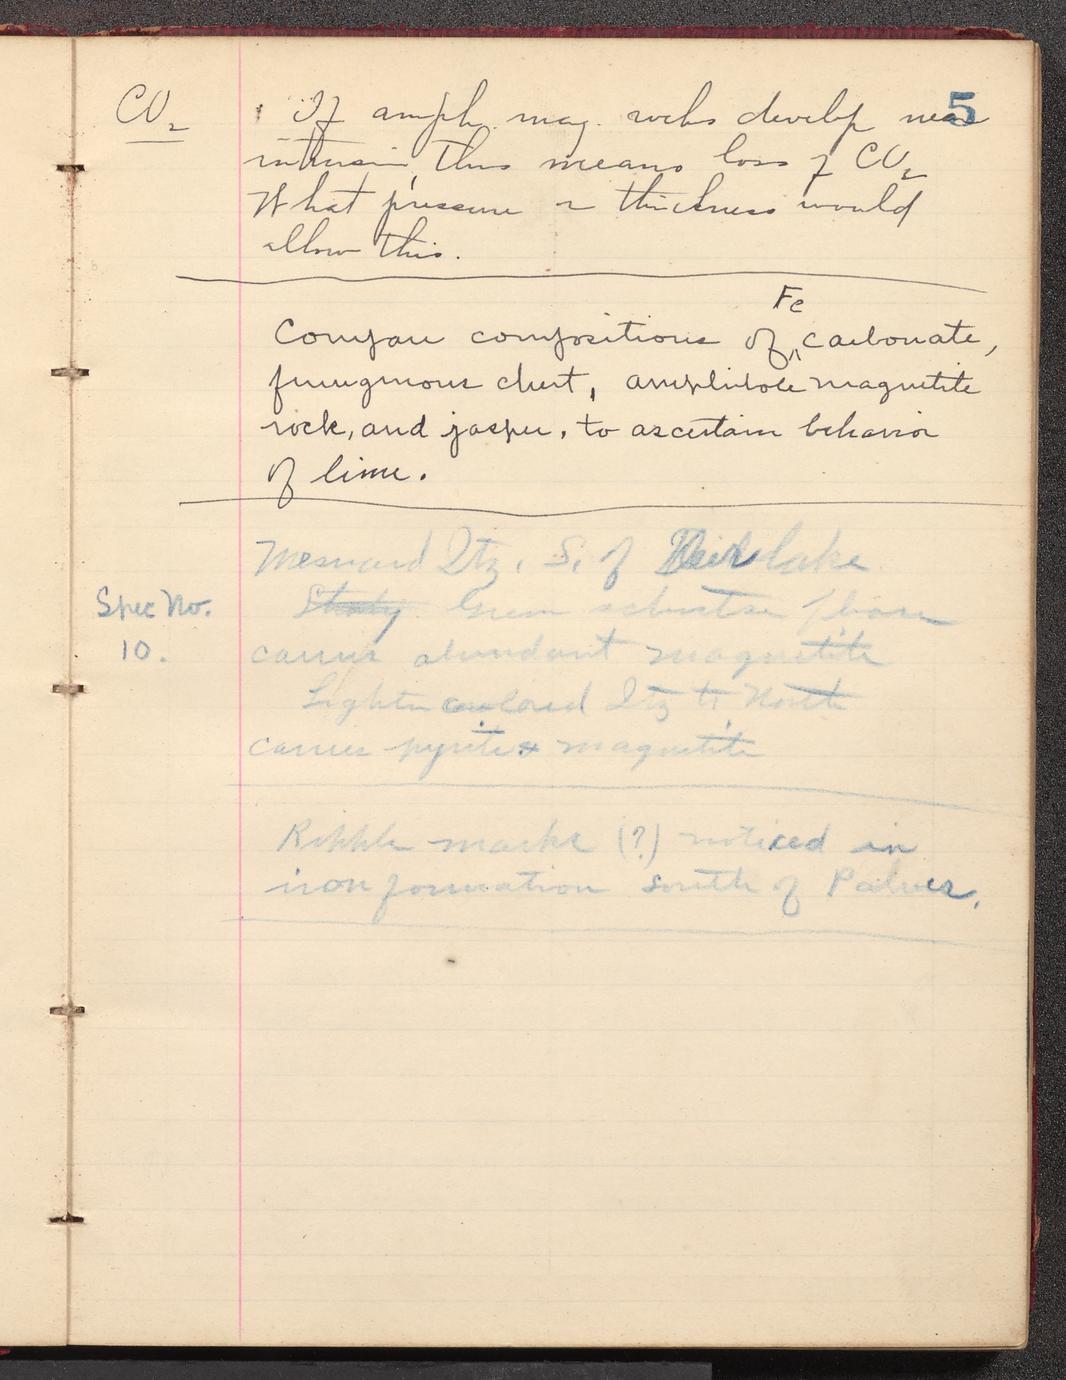 5
CO2 If amph. mag. rocks develop near
intrusion, this means loss of CO2
What pressure or thickness would
allow this.
Compare compositions of Fe carbonate,
ferruginous chert, amphibole magnetite
rock, and jasper, to ascertain behavior
of lime.
Mesnard Qtz. S. of lake
Spec No. Study Green schistose phase
10. carries abundant magnetite
Lighter colored Qtz to North
carries pyrite & magnetite
Ripple marks (?) noticed in
iron formation south of Palmer.